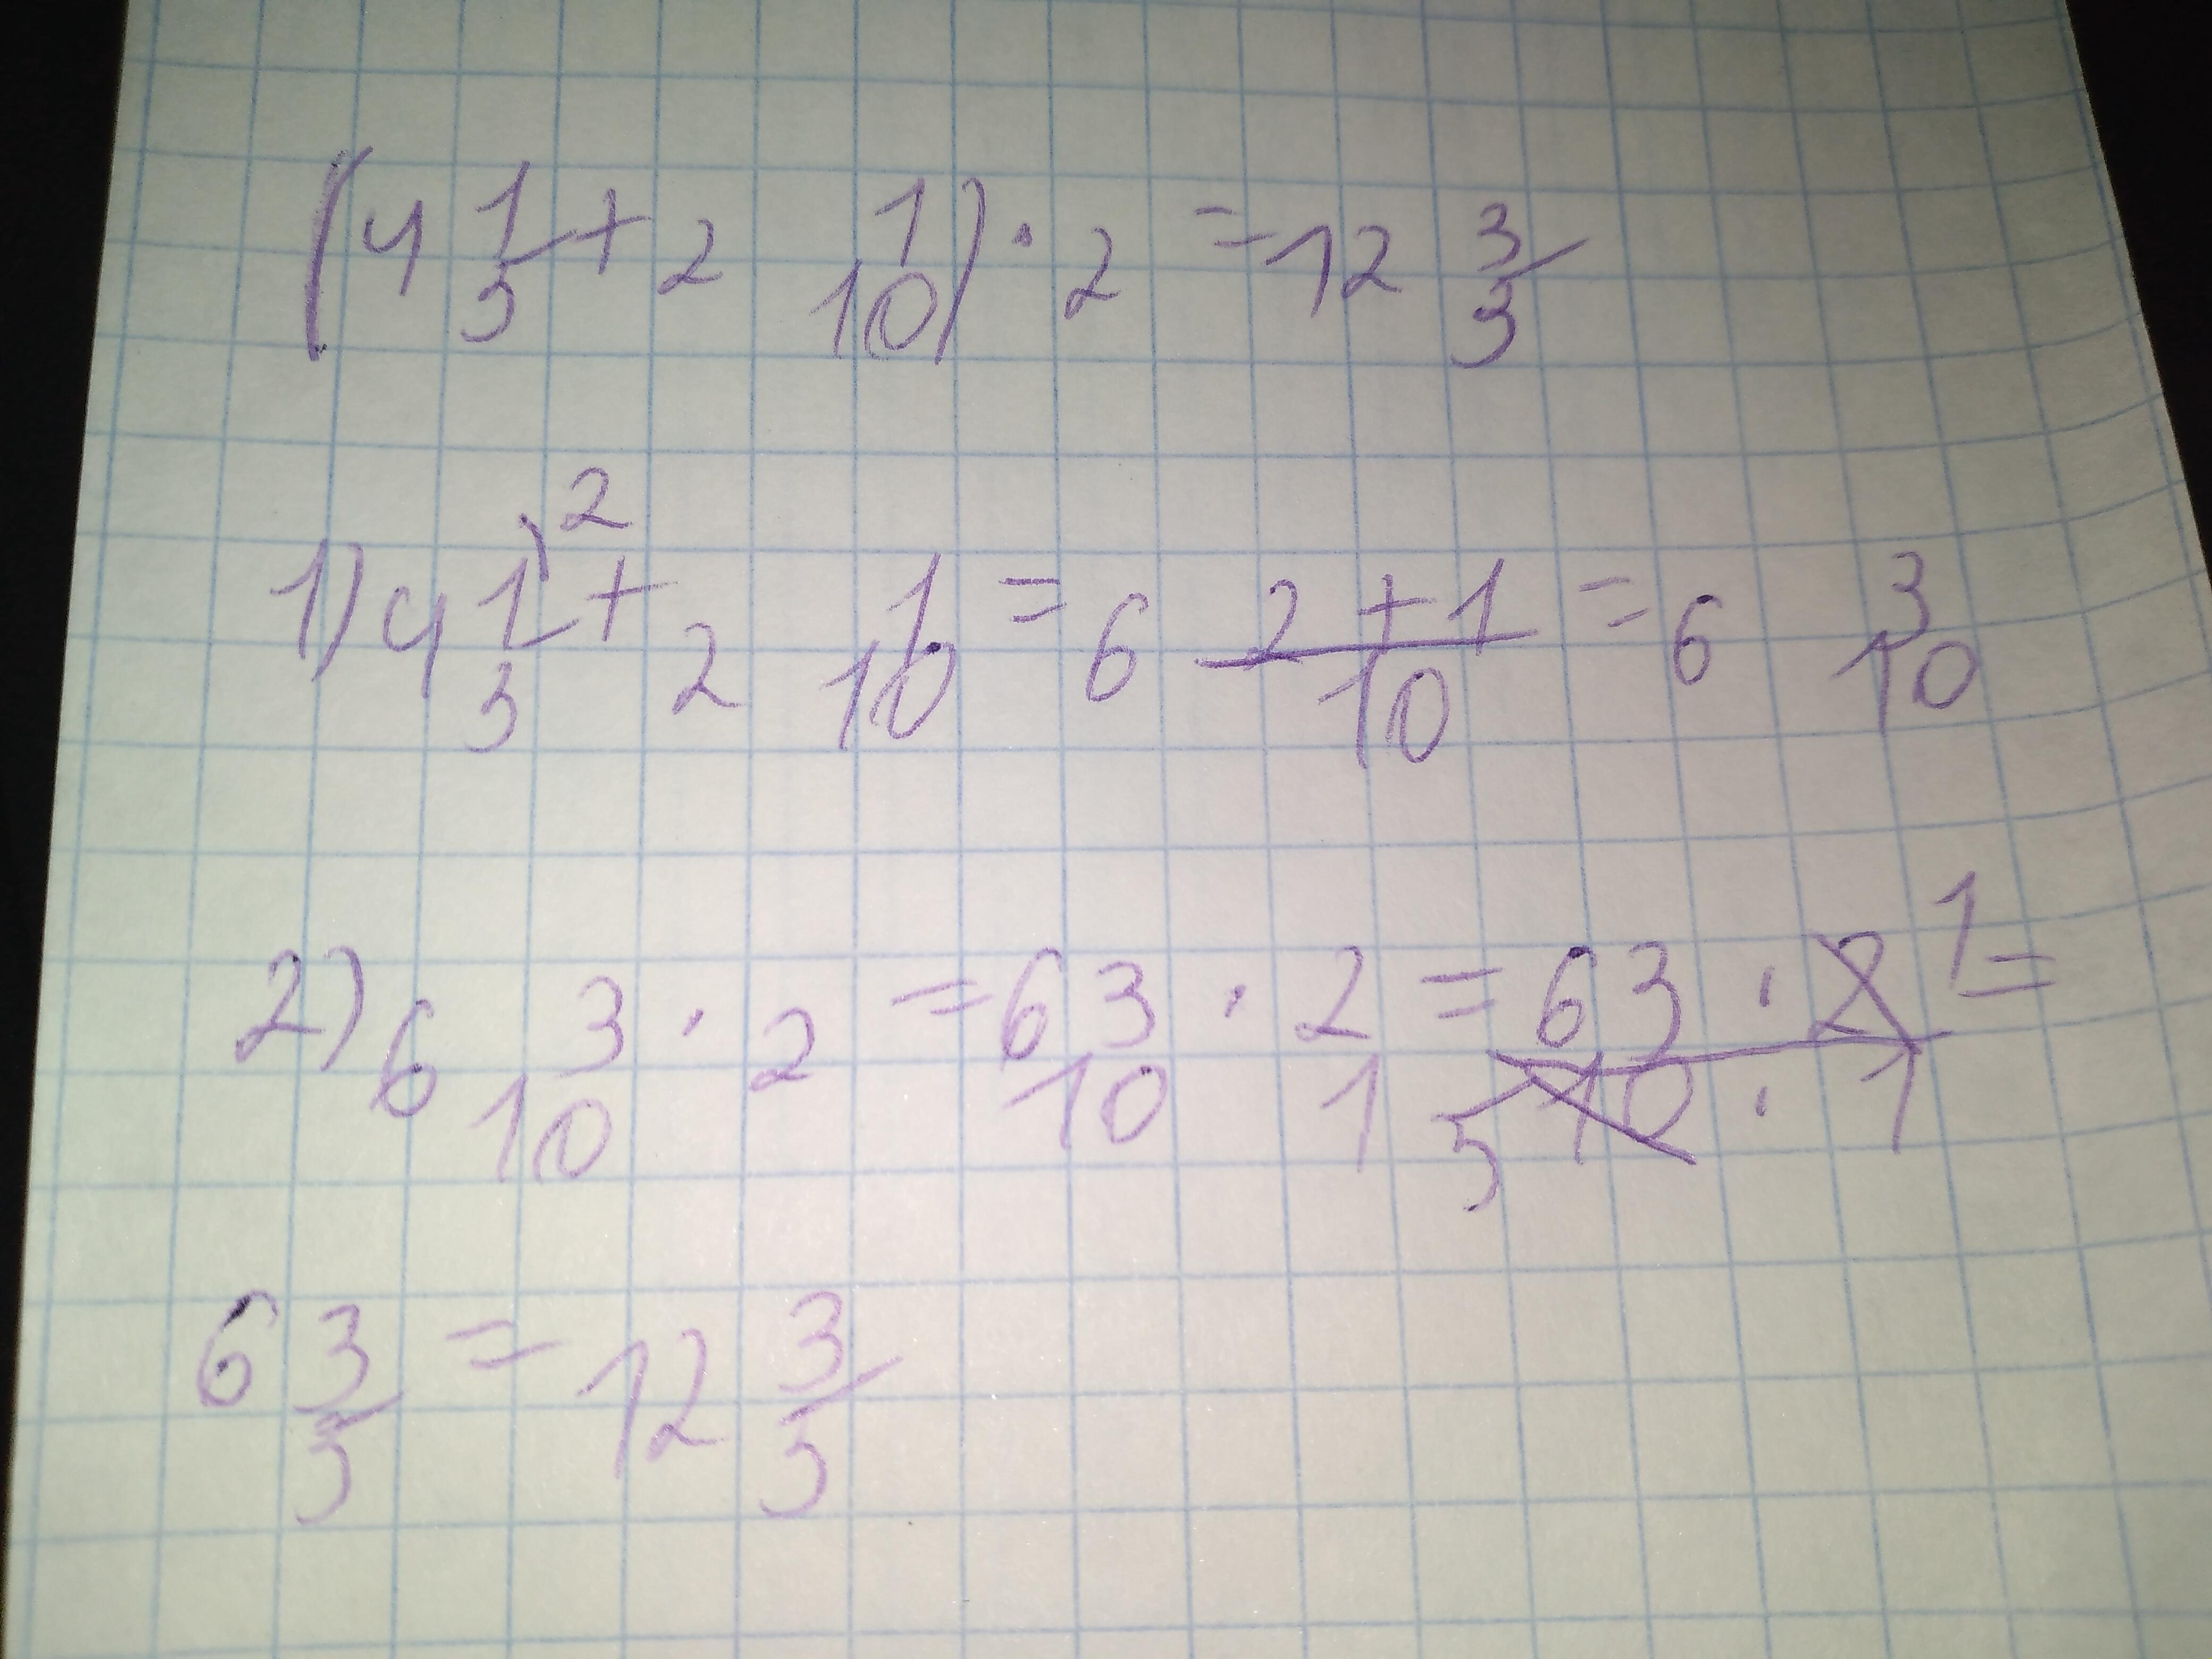 (4 1/5 + 2 1/10) · 2 = 12 3/5
1) 4 1/5 ⁾² + 2 1/10 = 6 (2+1)/10 = 6 3/10
2) 6 3/10 · 2 = 63/10 · 2/1 = (63 · 2 1)/(5 10 · 1) =
63/5 = 12 3/5